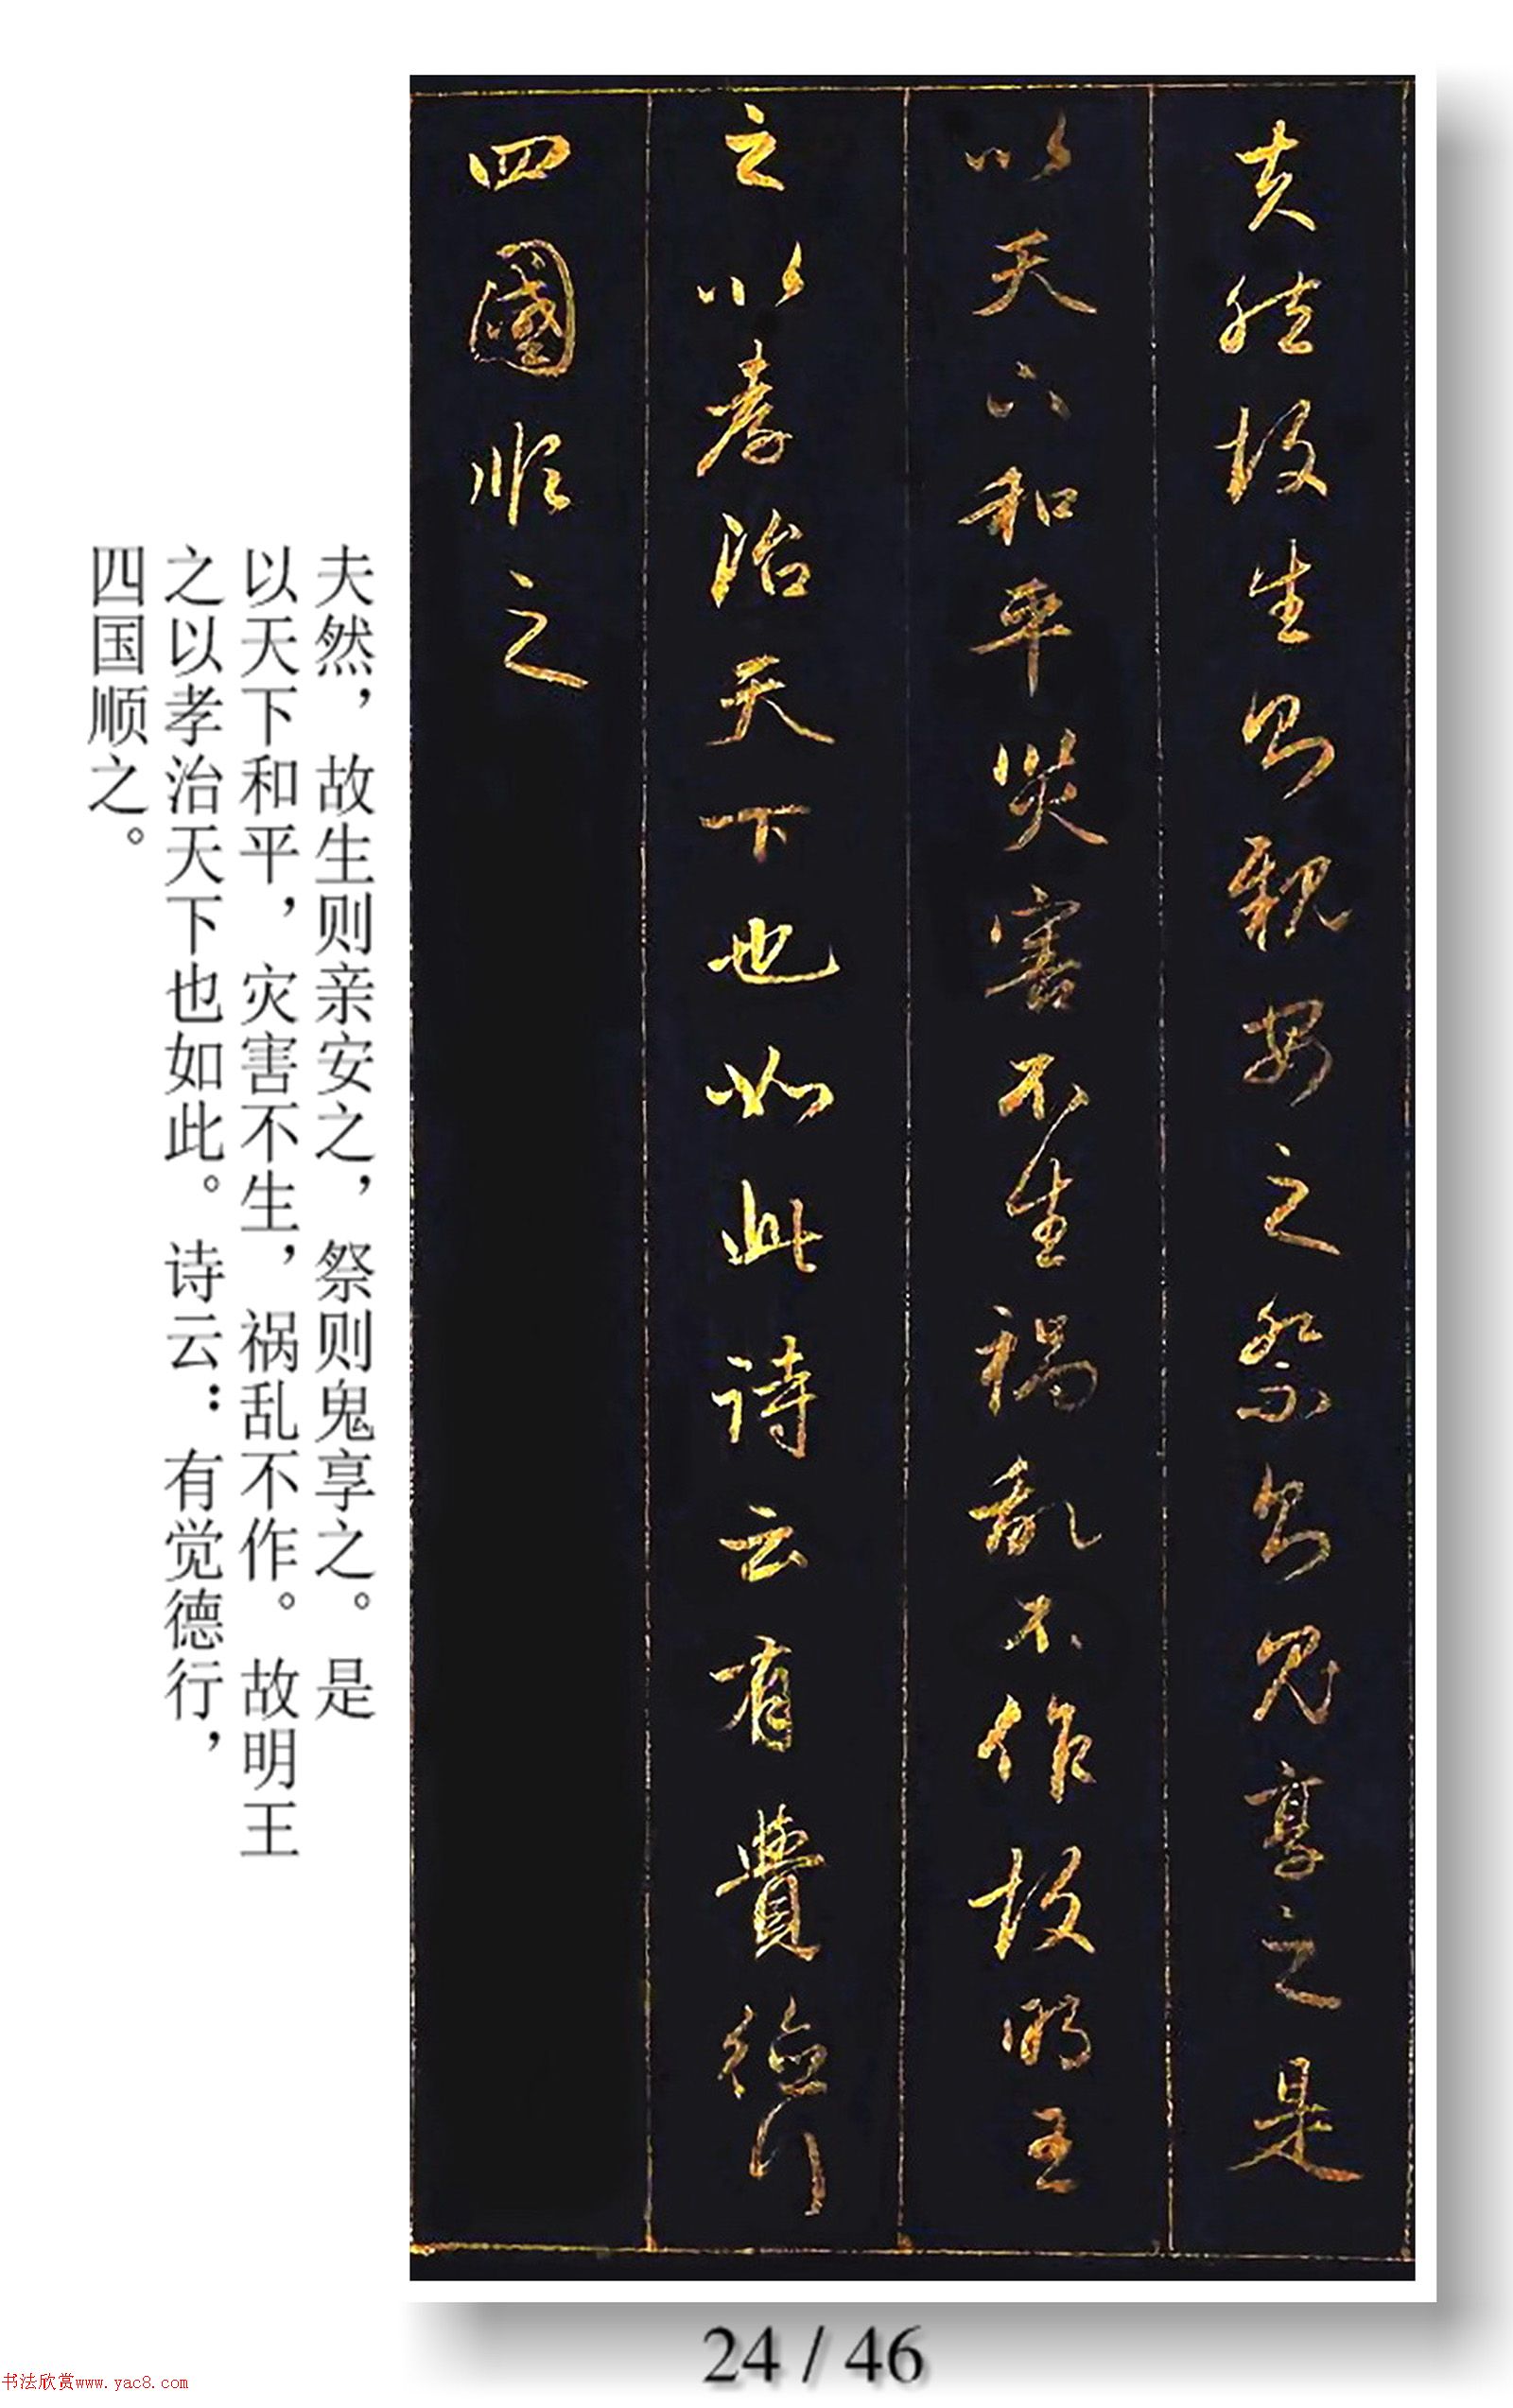 夫然故生則親安之祭則鬼享之是
以天下和平災害不生禍亂不作故明王
之以孝治天下也如此詩云有覺德行
四國順之
夫然，故生则亲安之，祭则鬼享之。是
以天下和平，灾害不生，祸乱不作。故明王
之以孝治天下也如此。诗云：有觉德行，
四国顺之。
24 / 46
书法欣赏www.yac8.com